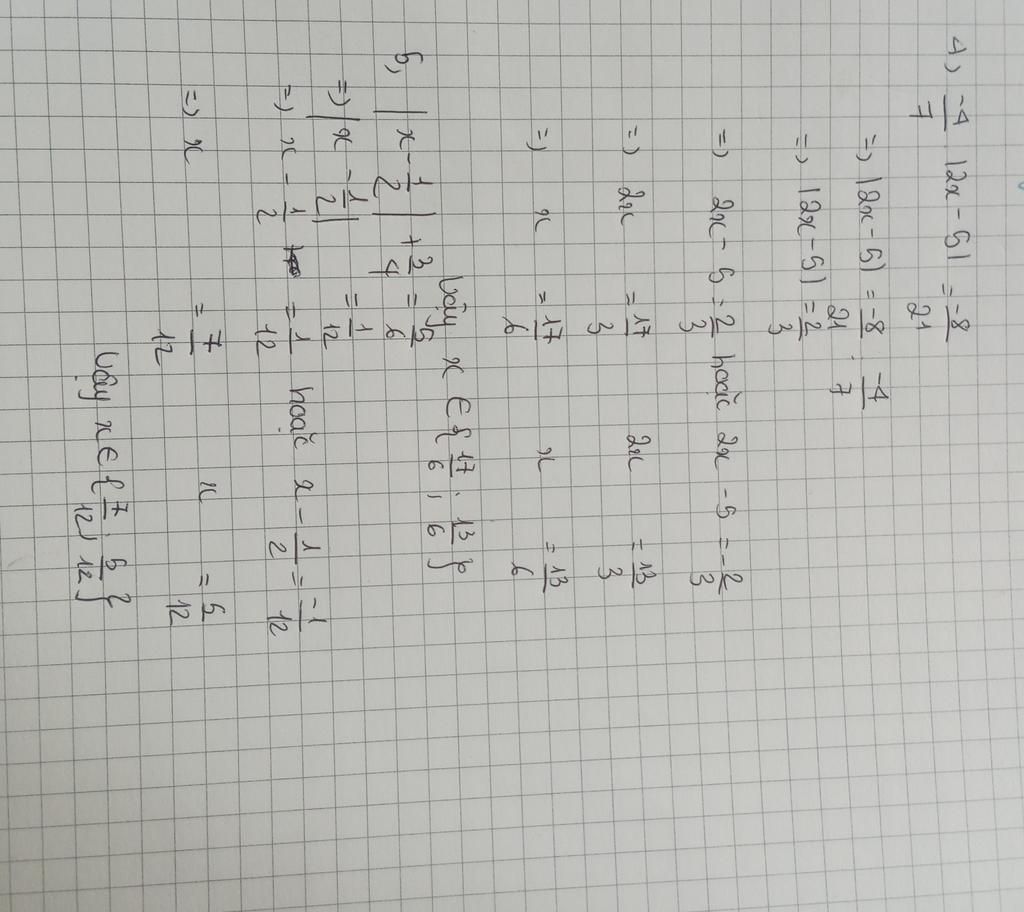 1) -4/7 |2x - 5| = -8/21
=) |2x - 5| = -8/21 : -4/7
=) |2x - 5| = 2/3
=) 2x - 5 = 2/3 hoặc 2x - 5 = -2/3
=) 2x = 17/3 2x = 13/3
=) x = 17/6 x = 13/6
Vậy x ∈ { 17/6 ; 13/6 }
b, | x - 1/2 | + 3/4 = 5/6
=) | x - 1/2 | = 1/12
=) x - 1/2 = 1/12 hoặc x - 1/2 = -1/12
=) x = 7/12 x = 5/12
Vậy x ∈ { 7/12 ; 5/12 }